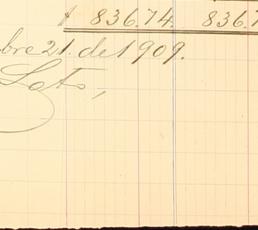 $ 836.74 836.7
bre 21. de 1909.